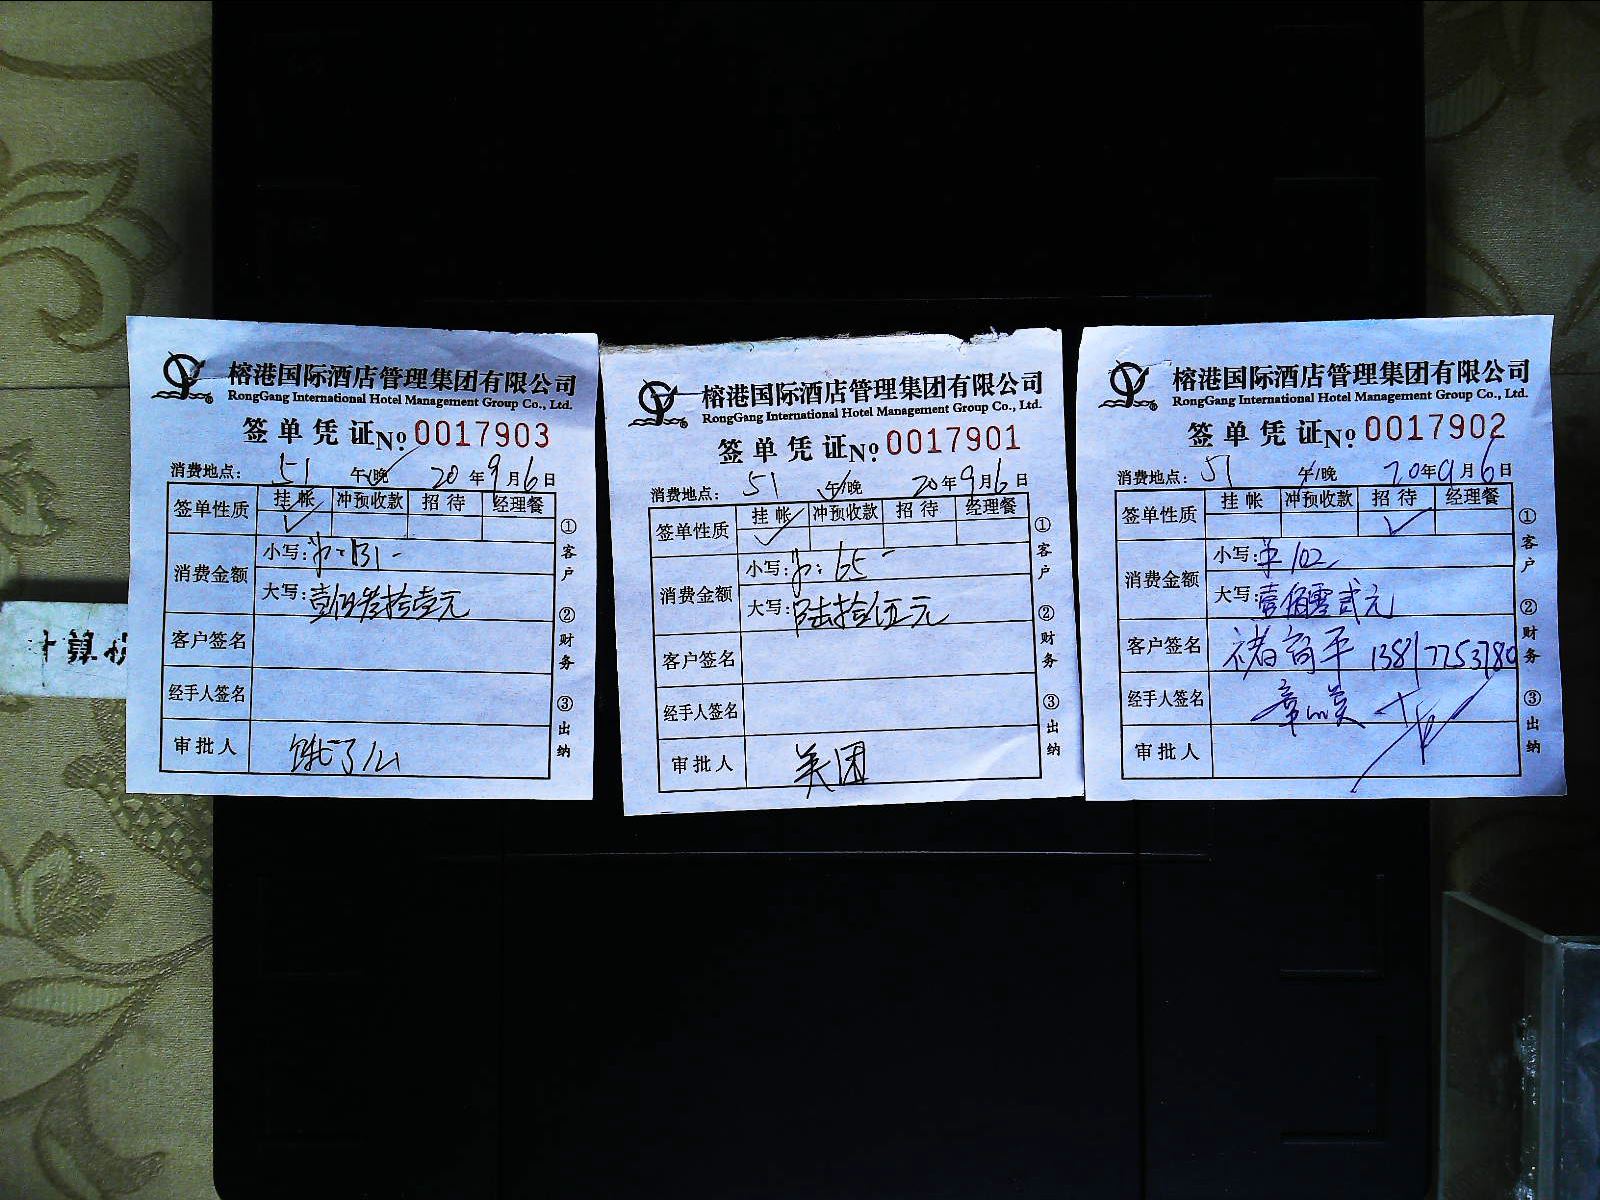 榕港国际酒店管理集团有限公司
RongGang International Hotel Management Group Co., Ltd.
签单凭证 No. 0017903
消费地点: 51 午/晚 20 年 9 月 6 日
签单性质 挂帐 冲预收款 招待 经理餐
消费金额 小写: 131-
大写: 壹佰叁拾壹元
客户签名
经手人签名
审批人 饿了么
①客户 ②财务 ③出纳
榕港国际酒店管理集团有限公司
RongGang International Hotel Management Group Co., Ltd.
签单凭证 No. 0017901
消费地点: 51 午/晚 20 年 9 月 6 日
签单性质 挂帐 冲预收款 招待 经理餐
消费金额 小写: 65-
大写: 陆拾伍元
客户签名
经手人签名
审批人 美团
①客户 ②财务 ③出纳
榕港国际酒店管理集团有限公司
RongGang International Hotel Management Group Co., Ltd.
签单凭证 No. 0017902
消费地点: 51 午/晚 20 年 9 月 6 日
签单性质 挂帐 冲预收款 招待 经理餐
消费金额 小写: 102
大写: 壹佰零贰元
客户签名 13817753780
经手人签名
审批人
①客户 ②财务 ③出纳
计算